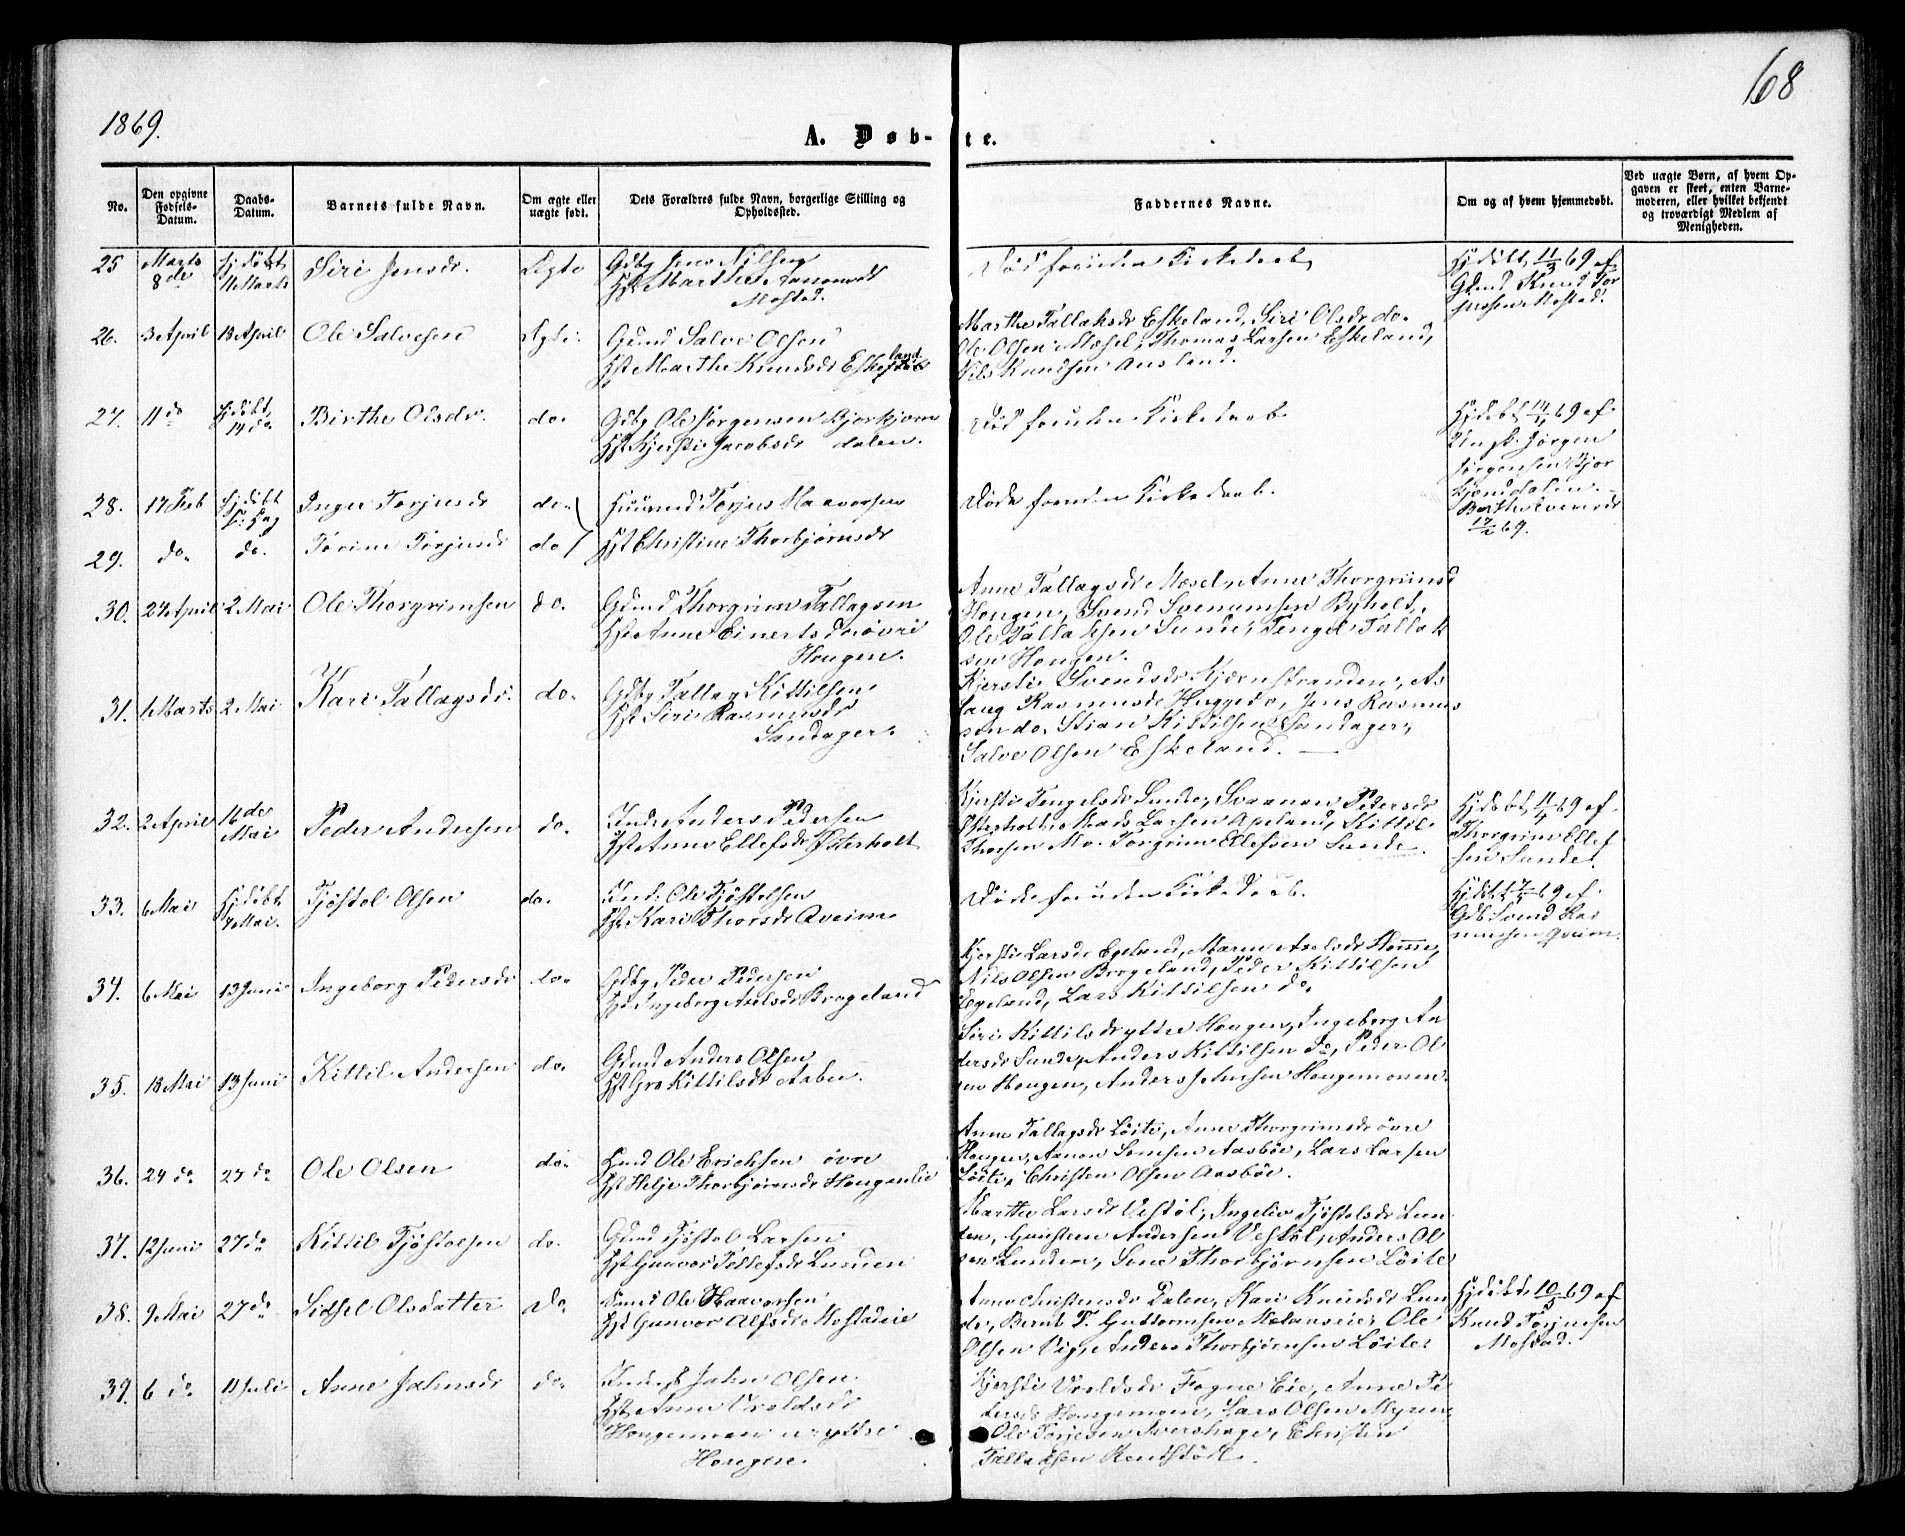 1869.
68
A. Døb- te.
No.
Den opgivne Fødsels-Datum.
Daabs-Datum.
Barnets fulde Navn.
Om ægte eller uægte født.
Dets Forældres fulde Navn, borgerlige Stilling og Opholdssted.
Faddernes Navne.
Om og af hvem hjemmedøbt.
Ved uægte Børn, af hvem Opgaven er skeet, enten Barnemoderen, eller hvilket bekjendt og troværdigt Medlem af Menigheden.
25 Marts 8de Hjdøbt 11 Marts Siri Jensdr. Ægte Gdbg Jens Nilsen
Hst Marthe
Mostad.
Død foruden Kirkedaab
Hjdøbt 11/3 69 af
Gmd Knud Tor
jusen Mostad.
26. 3 April 18 April Ole Salvesen Ægte. Gmd Salve Olsen
Hst Marthe Knudsdr Eskeland
Marthe Tallaksdr Eskeland, Siri Olsdr do.
Ole Olsen Mæsel, Thomas Larsen Eskeland,
Nils Knudsen Ausland.
27. 11 do Hjdøbt 14 do. Birthe Olsdr. do. Gdbg Ole Jørgensen Bjorkjern
Hst Kjersti Jacobsdr dalen.
Død foruden Kirkedaab.
Hjdøbt 14/4 69 af
Ungk. Jørgen
Jørgensen Bjor
kjerndalen.
28. 17 Feb Hjdøbt s. Dag Inger Torjusdr do. Huusmd Torjus Haavorsen
Døde foruden Kirkedaab.
Berthe Evensdr
17/2 69.
29. do. do. Torine Torjusdr do Hst Christine Thorbjørnsdr
30. 24 April 2 Mai Ole Thorgrimsen do. Gdmd Thorgrim Tallagsen
Hst Anne Einertsdr øvre
Hougen.
Anne Tallagsdr Mæsel, Anne Thorgrimsd
Hougen, Svend Svenumsen Byholt,
Ole Tallaksen Sunde, Tengel Tallak
sen Hougen.
31. 1 Marts 2 Mai Kari Tallagsdr. do. Gdbg Tallag Kittilsen
Hst Siri Rasmusdr
Sandager.
Kjersti Svendsdr Kjærnstranden, As
laug Rasmusdr Huggedo, Jens Rasmus
sen do. Stian Kittilsen Sandager,
Salve Olsen Eskeland.
32. 2 April 16de Mai Peder Andersen do. Inds Anders Pedersen
Hst Anne Ellefsdr Østerholt
Kjersti Tengelsdr Sunde, Svanaug Pedersdr
Østerholt, Mads Larsen Apeland, Kittil
Thorsen Mo. Torgrim Ellefsen Sunde.
Hjdøbt 11/4 69 af
Thorgrim Ellef
sen Sunde.
33. 6 Mai Hjdøbt 7 Mai. Tjøstol Olsen do. Ind. Ole Tjøstolsen
Hst Kari Thorsdr Qveim
Døde foruden Kirkedaab.
Hjdøbt 7/5 69 af
Gdb Svend Ras
musen Qveim.
34. 6 Mai 13 Juni Ingeborg Pedersdr do. Gdbg Peder Pedersen
Hst Ingeborg Axelsdr Brogeland
Kjersti Larsdr Egeland, Maren Axelsdr Homme,
Nils Olsen Brogeland, Peder Kittilsen
Egeland, Lars Kittilsen do.
35. 18 Mai 13 Juni Kittil Andersen do. Gmd Anders Olsen
Hst Gro Kittilsdr Aabu.
Siri Kittilsdr ytre Hougen, Ingeborg An
dersdr Sunde, Anders Kittilsen do, Peder Ol
sen Hougen, Anders Hougemoen.
36. 24 do 27 do Ole Olsen do. Hmd Ole Erichsen øvre
Hst Helje Thorbjørnsdr Hougenlie
Anne Tallagsdr Löite, Anne Thorgrimsdr øvre
Hougen, Aanon Aasböe, Lars Larsen
Löite, Christen Olsen Aasböe.
37. 12 Juni 27 do Kittil Tjøstolsen do. Gmd Tjøstol Larsen
Hst Gunvor Tellefsdr Lunden
Marthe Larsdr Vestöl, Ingeliv Tjøstolsdr Lun
den, Gunsteen Andersen Vestöl, Anders Ol
sen Lunden, Sone Thorbjørnsen Löite
38. 9 Mai 27 do Sidsel Olsdatter Do Smed Ole Haavorsen
Hst Gunvor Alfsdr Mostadeie
Anne Christensdr Dalen, Kari Knudsdr Lun
de, Bernt T. Guttormsen Mælanseie, Ole
Olsen Vig, Anders Thorbjørnsen Löite.
Hjdøbt 10/5 69 af
Knud Torjusen
Mostad.
39. 6 do 11 Juli Anne Jahnsdr do. Inderst Jahn Olsen
Hst Anne Uvoldsdr
Hougemoen u. ytre
Hougen.
Kjersti Uvoldsdr Fogne Eie, Anne Pe
dersdr Hougemoen, Lars Olsen Myren,
Ole Torjesen Ivershage, Christen
Tallaksen Rentstöl.